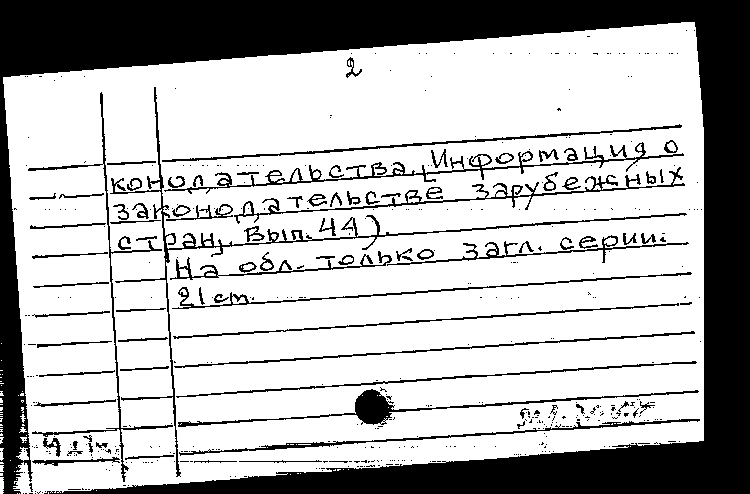 2
конодательства. Информация о
законодательстве зарубежных
стран, Вып. 44).
На обл. только загл. серии.
21 ст.